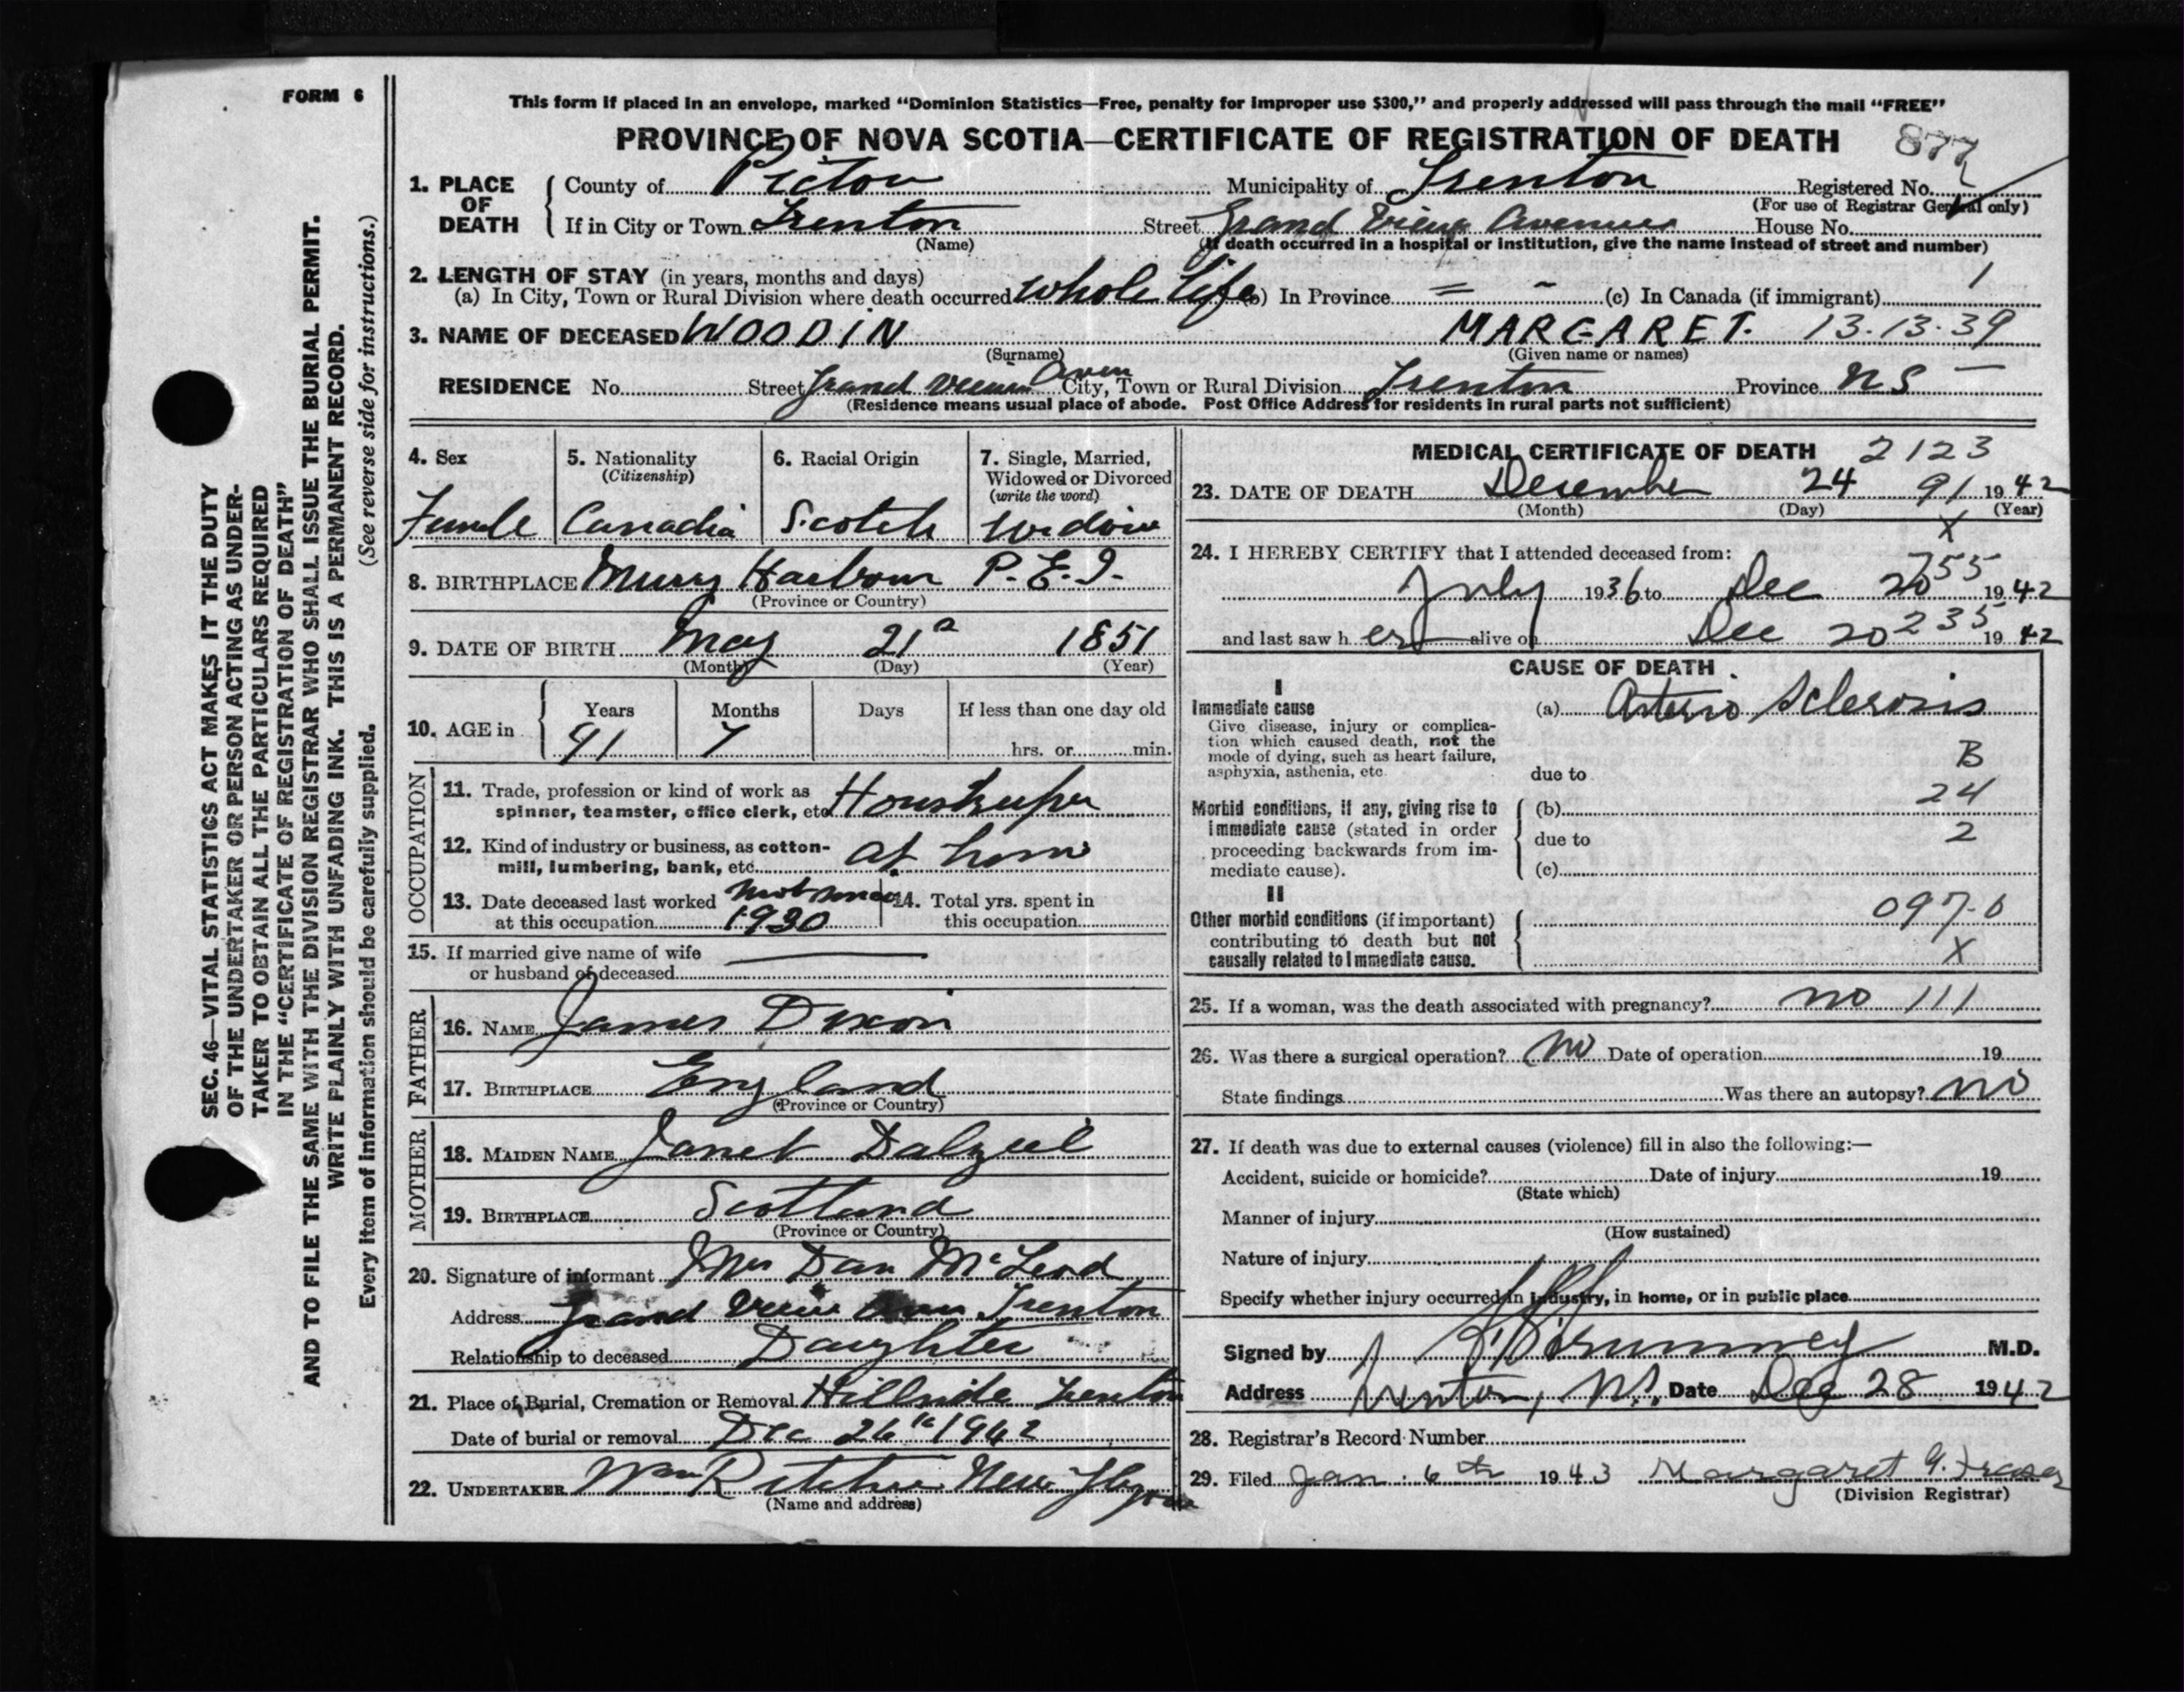 FORM 6
This form if placed in an envelope, marked "Dominion Statistics—Free, penalty for improper use $300," and properly addressed will pass through the mail "FREE"
PROVINCE OF NOVA SCOTIA—CERTIFICATE OF REGISTRATION OF DEATH
877
1. PLACE OF DEATH County of Pictou Municipality of Trenton Registered No.
(For use of Registrar General only)
If in City or Town Trenton Street Grand View Avenue House No.
(Name) (If death occurred in a hospital or institution, give the name instead of street and number)
2. LENGTH OF STAY (in years, months and days)
(a) In City, Town or Rural Division where death occurred whole Life (b) In Province (c) In Canada (if immigrant) 1
3. NAME OF DECEASED WOODIN MARGARET. 13.13.39
(Surname) (Given name or names)
RESIDENCE No. Street Grand View Aven City, Town or Rural Division Trenton Province NS
(Residence means usual place of abode. Post Office Address for residents in rural parts not sufficient)
SEC. 46—VITAL STATISTICS ACT MAKES IT THE DUTY
OF THE UNDERTAKER OR PERSON ACTING AS UNDER-
TAKER TO OBTAIN ALL THE PARTICULARS REQUIRED
IN THE "CERTIFICATE OF REGISTRATION OF DEATH"
AND TO FILE THE SAME WITH THE DIVISION REGISTRAR WHO SHALL ISSUE THE BURIAL PERMIT.
WRITE PLAINLY WITH UNFADING INK. THIS IS A PERMANENT RECORD.
Every item of information should be carefully supplied. (See reverse side for instructions.)
4. Sex 5. Nationality 6. Racial Origin 7. Single, Married,
(Citizenship) Widowed or Divorced
(write the word)
Female Canadia Scotch Widow
8. BIRTHPLACE Murry Harbour P.E.I.
(Province or Country)
9. DATE OF BIRTH May 21 1851
(Month) (Day) (Year)
10. AGE in Years Months Days If less than one day old
91 7 hrs. or min.
OCCUPATION
11. Trade, profession or kind of work as
spinner, teamster, office clerk, etc Housekeeper
12. Kind of industry or business, as cotton-
mill, lumbering, bank, etc. at home
13. Date deceased last worked not since 14. Total yrs. spent in
at this occupation 1930 this occupation
15. If married give name of wife
or husband of deceased
FATHER
16. NAME James Dixon
17. BIRTHPLACE England
(Province or Country)
MOTHER
18. MAIDEN NAME Janet Dalziel
19. BIRTHPLACE Scotland
(Province or Country)
20. Signature of informant Mrs Dan McLeod
Address Grand View Aven Trenton
Relationship to deceased Daughter
21. Place of Burial, Cremation or Removal Hillside Trenton
Date of burial or removal Dec 26th 1942
22. UNDERTAKER Wm Ritchie New Glasgow
(Name and address)
MEDICAL CERTIFICATE OF DEATH 2123
23. DATE OF DEATH December 24 91 1942
(Month) (Day) (Year)
X
24. I HEREBY CERTIFY that I attended deceased from:
755
July 1936 to Dec 20 1942
and last saw her alive on Dec 20 235 1942
CAUSE OF DEATH
I
Immediate cause (a) Arterio Sclerosis
Give disease, injury or complica-
tion which caused death, not the
mode of dying, such as heart failure,
asphyxia, asthenia, etc. due to B
Morbid conditions, if any, giving rise to (b) 24
immediate cause (stated in order due to 2
proceeding backwards from im-
mediate cause). (c)
II
Other morbid conditions (if important) 097-0
contributing to death but not
causally related to Immediate cause. X
25. If a woman, was the death associated with pregnancy? no 111
26. Was there a surgical operation? no Date of operation 19
State findings Was there an autopsy? no
27. If death was due to external causes (violence) fill in also the following:—
Accident, suicide or homicide? Date of injury 19
(State which)
Manner of injury
(How sustained)
Nature of injury
Specify whether injury occurred in industry, in home, or in public place
Signed by M.D.
Address Trenton, N.S. Date Dec 28 1942
28. Registrar's Record Number
29. Filed Jan. 6th 1943 Margaret G. Fraser
(Division Registrar)